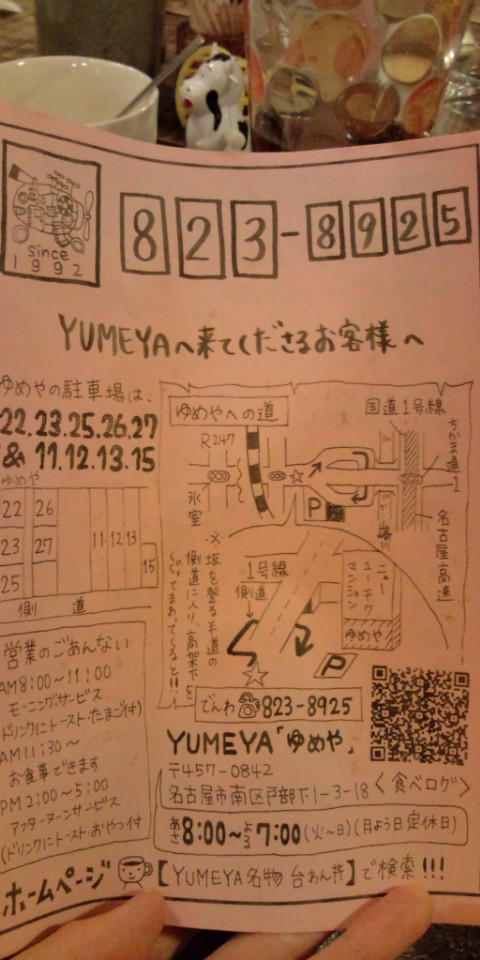 since
1992
823-8925
YUMEYAへ来てくださるお客様へ
ゆめやの駐車場は、
22.23.25.26.27
& 11.12.13.15
ゆめや
22 26
23 27 11 12 13
25 15
側 道
ゆめやへの道
国道1号線
R247
氷室
P
山崎川
名古屋高速
※坂を登る手前の
側道に入り、高架下を
ぐぐってまわってくると!!
1号線
側道
ニュー
ユーテク
マンション
ゆめや
P
営業のごあんない
AM8:00~11:00
モーニングサービス
(ドリンクにトースト・たまご付)
AM11:30~
お食事できます
PM2:00~5:00
アフターヌーンサービス
(ドリンクにトースト・おやつ付
でんわ 823-8925
YUMEYA「ゆめや」
〒457-0842
名古屋市南区戸部下1-3-18
<食べログ>
あさ8:00~よる7:00(火~日)(月よう日定休日)
ホームページ
【YUMEYA名物 台あん丼】で検索!!!